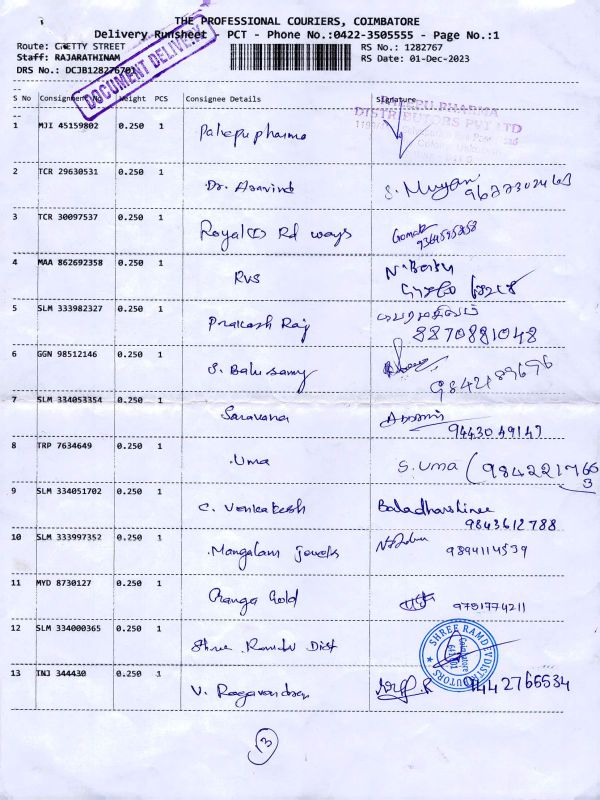 THE PROFESSIONAL COURIERS, COIMBATORE
Delivery Runsheet - PCT - Phone No.:0422-3505555 - Page No.:1
Route: CHETTY STREET RS No.: 1282767
Staff: RAJARATHINAM RS Date: 01-Dec-2023
DRS No.: DCJB128276701
DOCUMENT DELIVERY
S No Consignment No Weight PCS Consignee Details Signature
DISTRIBUTORS PVT LTD
1 MJI 45159802 0.250 1
2 TCR 29630531 0.250 1 Dr. Aravind
3 TCR 30097537 0.250 1 Rd ways
4 MAA 862692358 0.250 1 RVS
5 SLM 333982327 0.250 1 Prakash Raj 8870881048
6 GGN 98512146 0.250 1 S. Balusamy 9842189696
7 SLM 334053354 0.250 1 Saravana 9443049147
8 TRP 7634649 0.250 1 Uma S. Uma
9 SLM 334051702 0.250 1 C. Venkatesh Baladharshinee
9843612788
10 SLM 333997352 0.250 1 Mangalam Jewels 9894114539
11 MYD 8730127 0.250 1 Gold 9751774211
12 SLM 334000365 0.250 1 Shree Ramdev Dist
SHREE RAMDEV DISTRIBUTORS
13 TNJ 344430 0.250 1 V. Ragavendran 9442766534
13